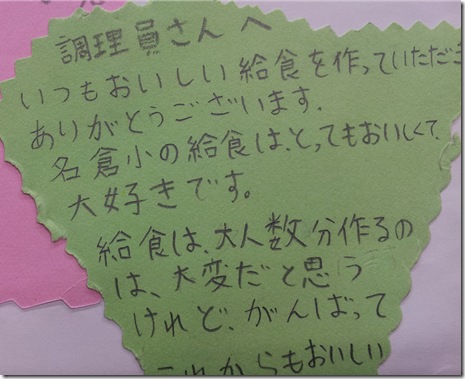 調理員さんへ
いつもおいしい給食を作っていただき
ありがとうございます.
名倉小の給食は、とってもおいしくて、
大好きです。
給食は、大人数分作るの
は、大変だと思う
けれど、がんばって
これからもおいしい